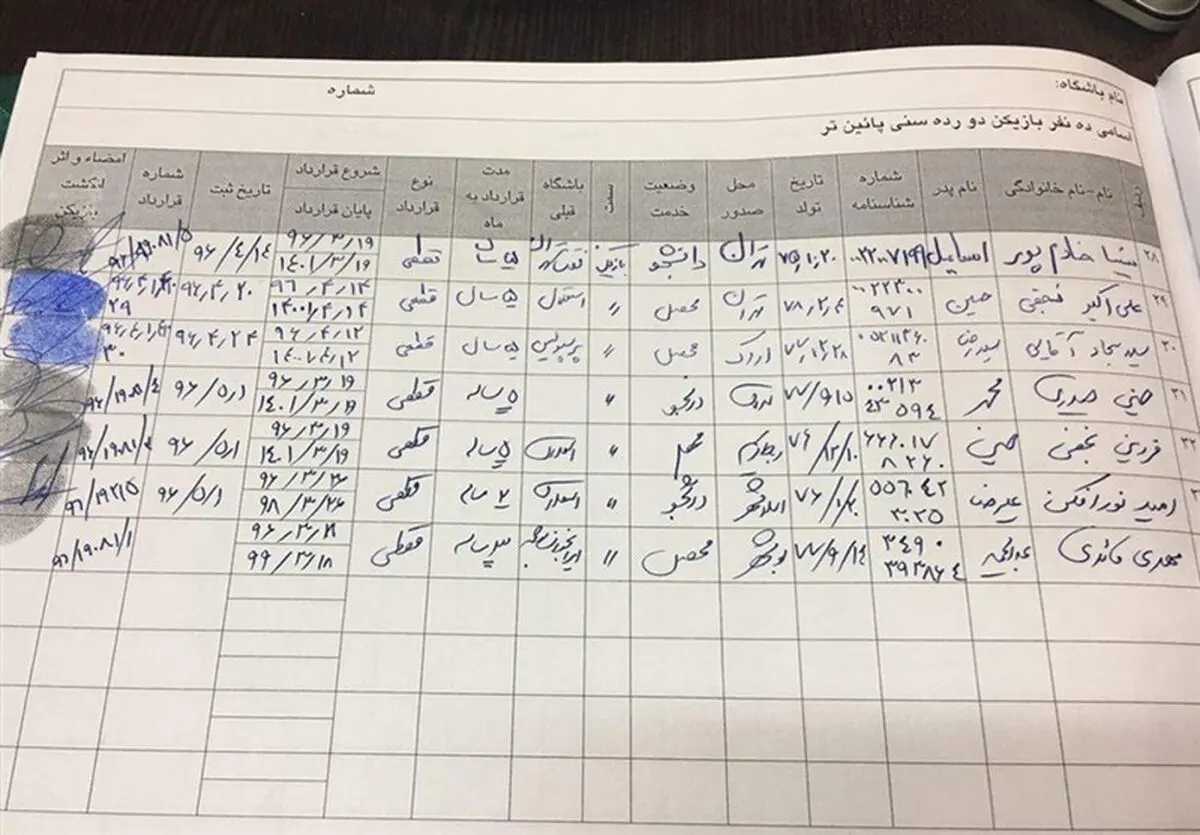 نام باشگاه: شماره
اسامی ده نفر بازیکن دو رده سنی پائین تر
ردیف نام-نام خانوادگی نام پدر شماره شناسنامه تاریخ تولد محل صدور وضعیت خدمت سمت باشگاه قبلی مدت قرارداد به ماه نوع قرارداد شروع قرارداد پایان قرارداد تاریخ ثبت شماره قرارداد امضاء و اثر انگشت بازیکن
۲۸ سینا خادم پور اسماعیل ۷۵,۱,۲۰ تهران دانشجو بازیکن نفت تهران ۵ سال قطعی ۹۶/۳/۱۹ ۱۴۰۱/۳/۱۹ ۹۶/۴/۱۴
۲۹ علی اکبر نجفی حسین ۰۰۲۲۳۰۰ ۹۷۱ ۷۸,۲,۴ تهران محصل // استقلال ۵ سال قطعی ۹۶,۴,۱۴ ۱۴۰۰,۴,۱۴ ۹۶,۴,۲۰
۳۰ سید سجاد آقایی سیدرضا ۷۷,۲,۲۸ اراک محصل // پرسپولیس ۵ سال قطعی ۹۶,۴,۱۲ ۱۴۰۰,۴,۱۲ ۹۶,۴,۲۴
۳۱ صدری محمد ۰۰۲۱۳ ۴۳۵۹۴ ۷۷/۹/۵ دانشجو // ۵ ساله قطعی ۹۶/۳/۱۹ ۱۴۰۱/۳/۱۹ ۹۶/۵/۱
۳۲ فردین نجفی حسین ۶۶۶۰۱۷ ۸۲۶۰ ۷۶/۱۲/۱۰ رباط کریم محصل // استقلال ۵ ساله قطعی ۹۶/۳/۱۹ ۱۴۰۱/۳/۱۹ ۹۶/۵/۱
امید نورافکن علیرضا ۰۰۵۶۰۴۲ ۳۰۳۵ ۷۶/۱/۲۰ اسلامشهر دانشجو // استقلال ۲ ساله قطعی ۹۶/۳/۲۶ ۹۸/۳/۲۶ ۹۶/۵/۱ ۹۶/۱۹۲/۵
مهدی قائدی عبدالحمید ۳۴۹۰ ۳۹۳۸۶۴ ۷۷/۹/۱۴ بوشهر محصل // ۳ ساله قطعی ۹۶/۳/۱۸ ۹۹/۳/۱۸ ۹۶/۱۹۰۸۱/۱